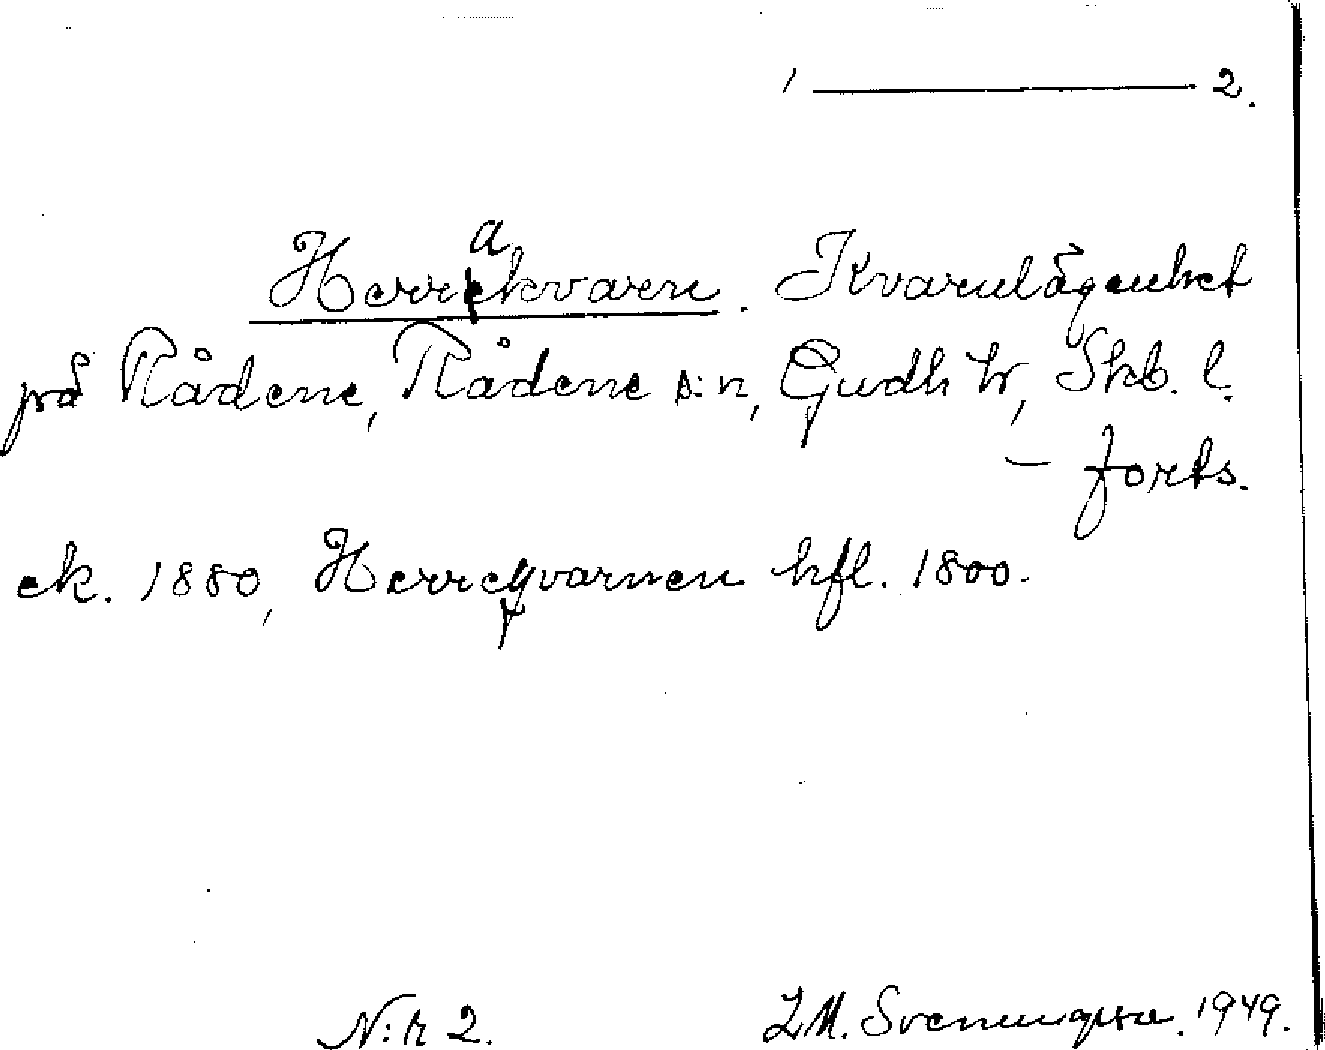 1 ——— 2.
Herrakvarn. Kvarnlägenhet
på Rådene, Rådene s:n, Gudh hr, Skb. l.
– forts.
ek. 1880, Herreqvarnen hfl. 1800.
N:r 2. I.M. Svenungsson. 1949.